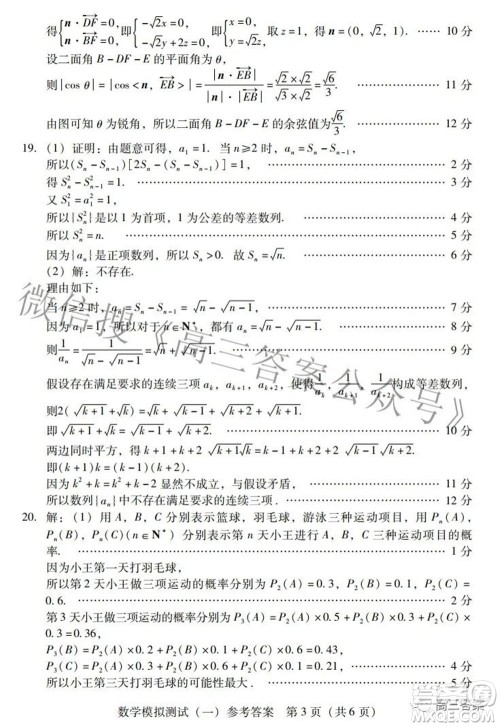 得{n·DF=0, n·BF=0, 即{−√2y=0, −√2y+2z=0, 即{x=0, y=√2z, 取z=1,得n=(0,√2,1). …… 10分
设二面角B-DF-E的平面角为θ,
则|cos θ|=|cos<n,EB>|=|n·EB|/(|n|·|EB|)=(√2×√2)/(√3×√2)=√6/3. …… 11分
由图可知θ为锐角,所以二面角B-DF-E的余弦值为√6/3. …… 12分
19. (1)证明:由题意可得,a₁=1. 当n≥2时,aₙ=Sₙ-Sₙ₋₁,
所以(Sₙ-Sₙ₋₁)[2Sₙ-(Sₙ-Sₙ₋₁)]=1, …… 2分
得Sₙ²-Sₙ₋₁²=1.
又S₁²=a₁²=1,
所以{Sₙ²}是以1为首项,1为公差的等差数列. …… 4分
所以Sₙ²=n. …… 5分
因为{aₙ}是正项数列,所以Sₙ>0. 故Sₙ=√n. …… 6分
(2)解:不存在.
理由如下:
当n≥2时,aₙ=Sₙ-Sₙ₋₁=√n-√(n-1), …… 7分
因为a₁=1,所以对于n∈N*,都有aₙ=√n-√(n-1). …… 8分
则1/aₙ=1/(√n-√(n-1))=√n+√(n-1).
假设存在满足要求的连续三项aₖ,aₖ₊₁,aₖ₊₂,使得1/aₖ,1/aₖ₊₁,1/aₖ₊₂构成等差数列,
则2(√(k+1)+√k)=√k+√(k-1)+√(k+2)+√(k+1).
即√(k+1)+√k=√(k-1)+√(k+2). …… 10分
两边同时平方,得k+1+k+2√(k+1)√k=k-1+k+2+2√(k-1)√(k+2).
即(k+1)k=(k-1)(k+2).
因为k²+k=k²+k-2显然不成立,与假设矛盾, …… 11分
所以数列{aₙ}中不存在满足要求的连续三项. …… 12分
20. 解:(1)用A,B,C分别表示篮球,羽毛球,游泳三种运动项目,用Pₙ(A),
Pₙ(B),Pₙ(C)(n∈N*)分别表示第n天小王进行A,B,C三种运动项目的概
率. …… 1分
因为小王第一天打羽毛球,
所以第2天小王做三项运动的概率分别为P₂(A)=0.3,P₂(B)=0.1,P₂(C)=
0.6. …… 2分
第3天小王做三项运动的概率分别为P₃(A)=P₂(A)×0.5+P₂(B)×0.3+P₂(C)×
0.3=0.36,
P₃(B)=P₂(A)×0.2+P₂(B)×0.1+P₂(C)×0.6=0.43,
P₃(C)=P₂(A)×0.3+P₂(B)×0.6+P₂(C)×0.1=0.21.
所以小王第三天打羽毛球的可能性最大. …… 5分
数学模拟测试(一) 参考答案 第3页(共6页)
微信搜《高三答案公众号》
高三答案